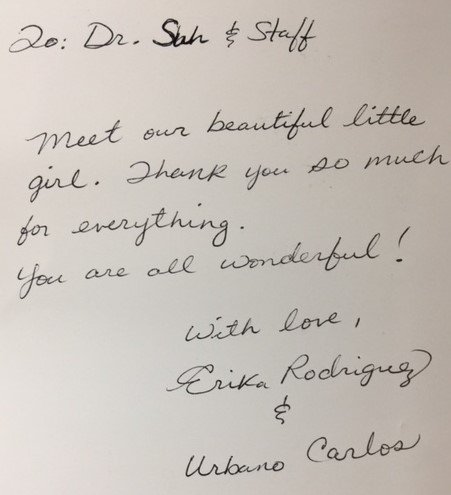 To: Dr. Sah & Staff
Meet our beautiful little
girl. Thank you so much
for everything.
You are all wonderful!
With love,
Erika Rodriguez
&
Urbano Carlos